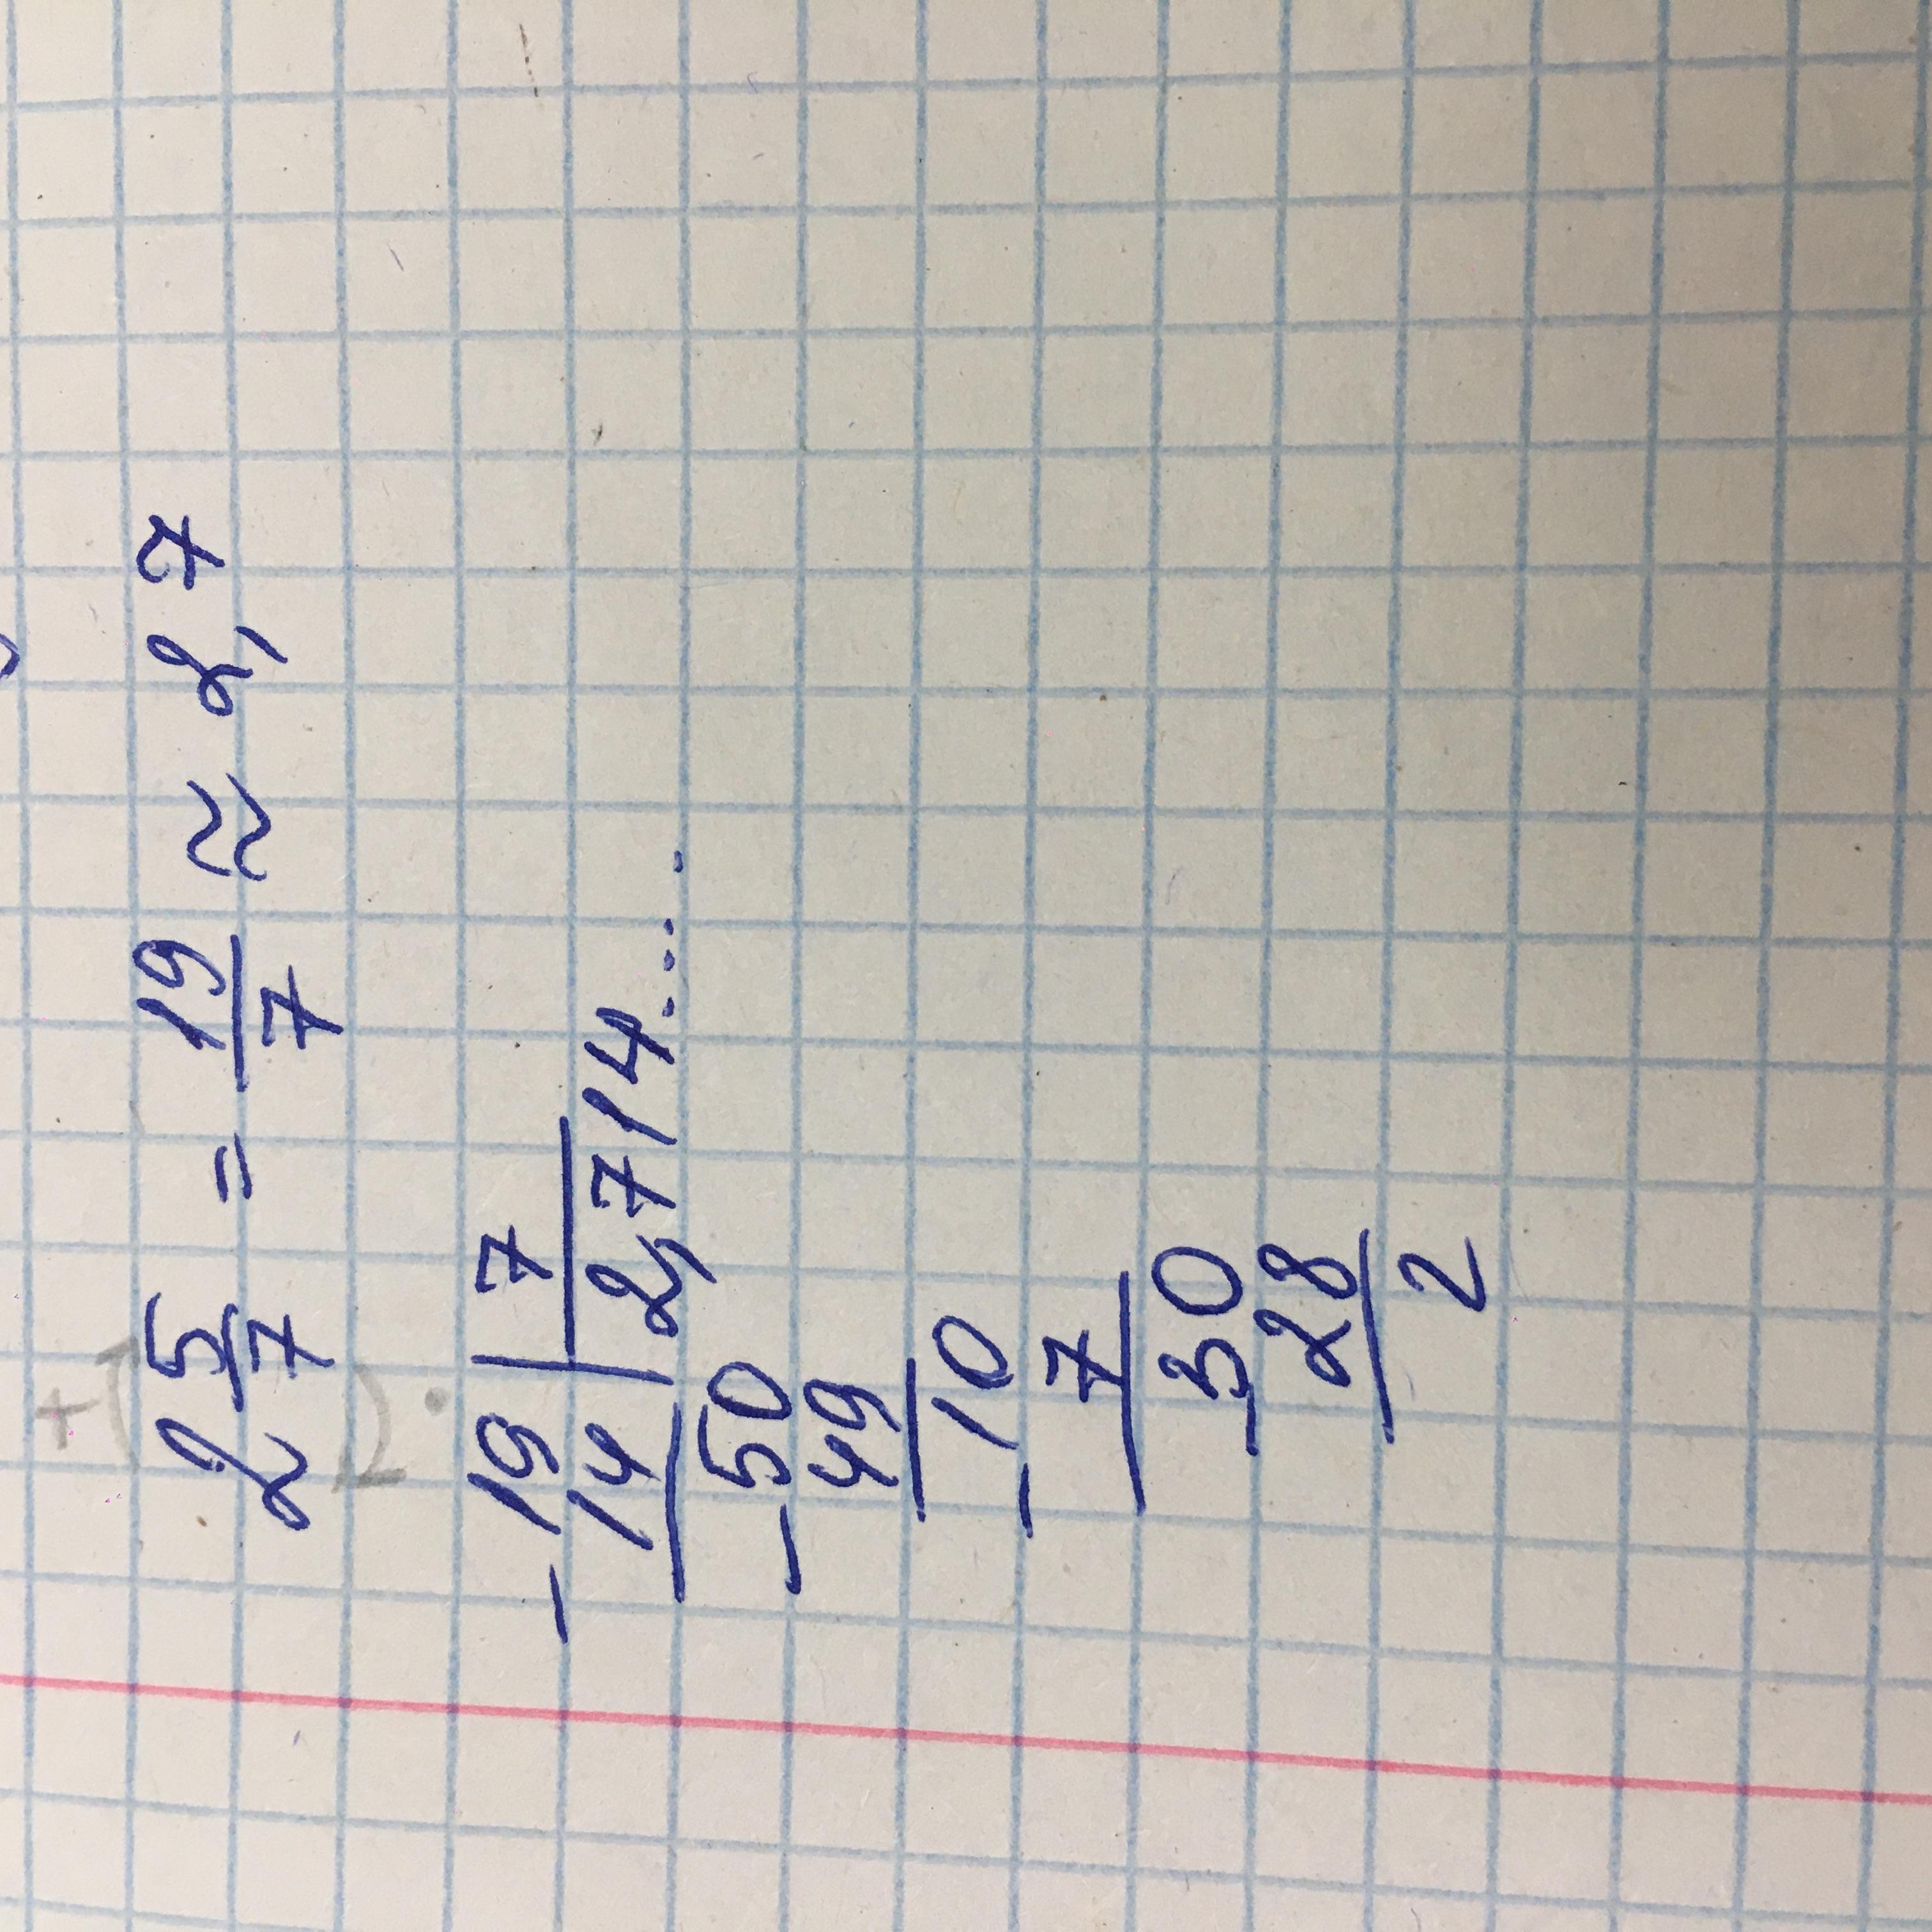 2 5/7 = 19/7 ≈ 2,7
- 19 | 7
14 | 2,714....
- 50
49
- 10
7
- 30
28
2